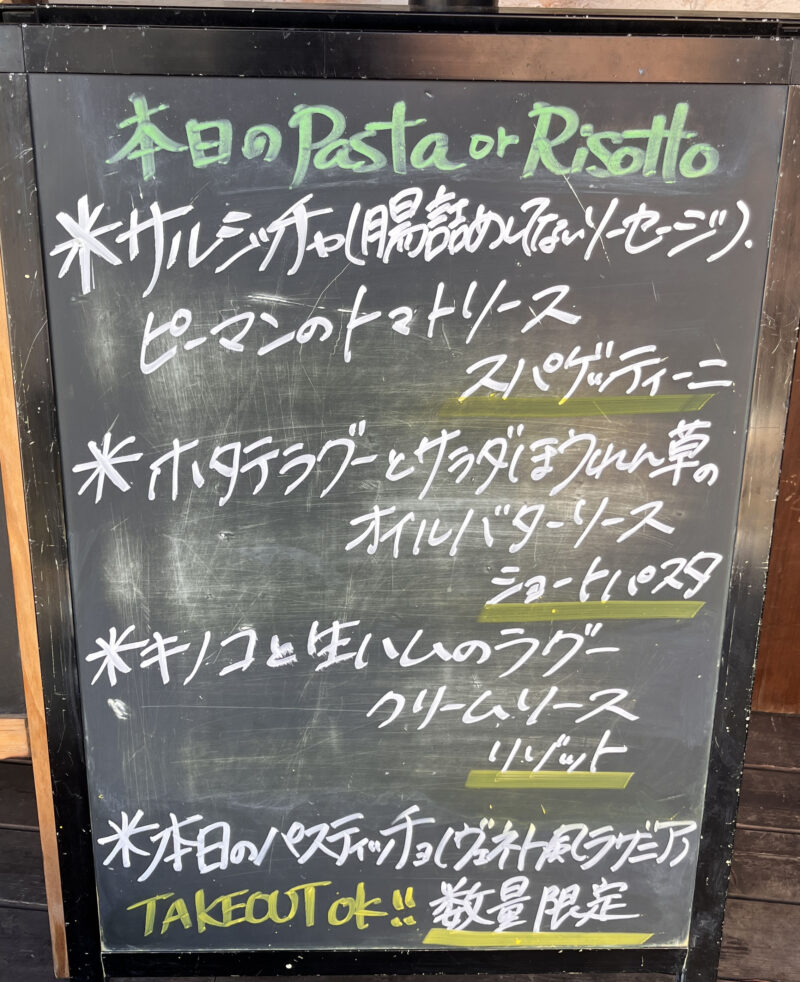 本日のPasta or Risotto
*サルシッチャ(腸詰めしてないソーセージ).
ピーマンのトマトソース
スパゲッティーニ
*ホタテラグーとサラダほうれん草の
オイルバターソース
ショートパスタ
*キノコと生ハムのラグー
クリームソース
リゾット
*本日のパスティッチョ(ヴェネト風ラザニア)
TAKEOUT ok!! 数量限定